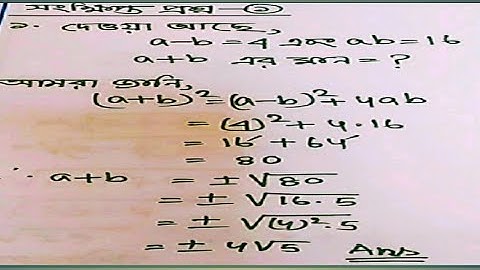 সংক্ষিপ্ত প্রশ্ন - ১
১. দেওয়া আছে,
a-b = 4 এবং ab = 16
a+b এর মান = ?
আমরা জানি,
(a+b)² = (a-b)² + 4ab
= (4)² + 4.16
= 16 + 64
= 80
∴ a+b = ± √80
= ± √16.5
= ± √(4)².5
= ± 4√5 Ans